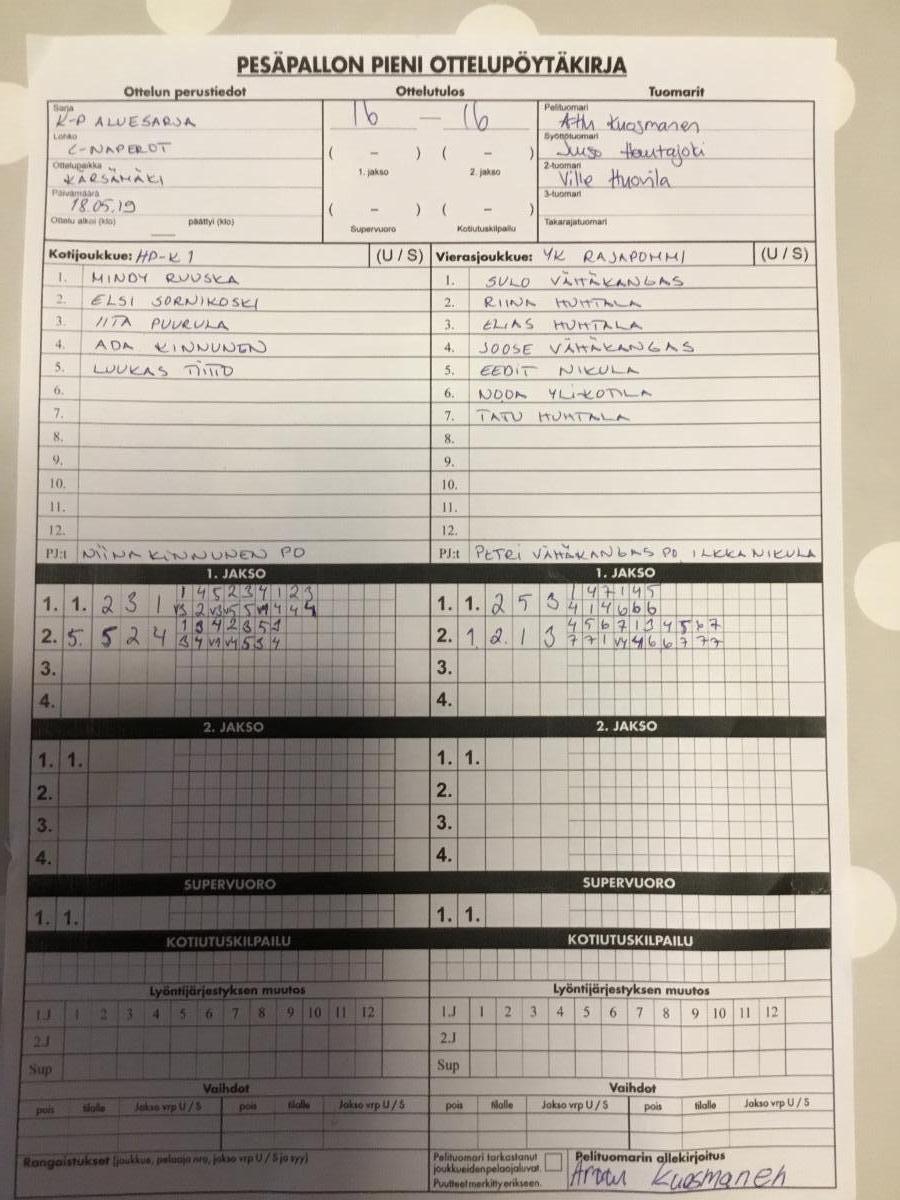 PESÄPALLON PIENI OTTELUPÖYTÄKIRJA
Ottelun perustiedot Ottelutulos Tuomarit
Sarja
K-P ALUESARJA
Lohko
C-NAPEROT
Ottelupaikka
KÄRSÄMÄKI
Päivämäärä
18.05.19
Ottelu alkoi (klo) päättyi (klo)
16 – 16
( – ) ( – )
1. jakso 2. jakso
( – ) ( – )
Supervuoro Kotiutuskilpailu
Pelituomari
Kuosmanen
Syöttötuomari
Juuso Hautajoki
2-tuomari
Ville Huovila
3-tuomari
Takarajatuomari
Kotijoukkue: HP-K 1 (U / S) Vierasjoukkue: YK RAJAPOMMI (U / S)
1. MINDY RUUSKA 1. SULO VÄHÄKANGAS
2. ELSI SORNIKOSKI 2. RIINA HUHTALA
3. IITA PUURULA 3. ELIAS HUHTALA
4. ADA KINNUNEN 4. JOOSE VÄHÄKANGAS
5. LUUKAS TIITO 5. EEDIT NIKULA
6. 6. NOOA YLI-KOTILA
7. 7. TATU HUHTALA
8. 8.
9. 9.
10. 10.
11. 11.
12. 12.
PJ:t NIINA KINNUNEN PJ:t PETRI VÄHÄKANGAS ILKKA NIKULA
1. JAKSO 1. JAKSO
1. 1. 2 3 1 1 4 5 2 3 4 1 2 3 1. 1. 2 5 3 1 4 7 1 4 5
4 1 4 6 6 6
2. 5. 5 2 4 2. 1 2. 1 3 4 5 6 7 1 3 4 5 6 7
3. 3.
4. 4.
2. JAKSO 2. JAKSO
1. 1. 1. 1.
2. 2.
3. 3.
4. 4.
SUPERVUORO SUPERVUORO
1. 1. 1. 1.
KOTIUTUSKILPAILU KOTIUTUSKILPAILU
Lyöntijärjestyksen muutos Lyöntijärjestyksen muutos
1.J 1 2 3 4 5 6 7 8 9 10 11 12 1.J 1 2 3 4 5 6 7 8 9 10 11 12
2.J 2.J
Sup Sup
Vaihdot Vaihdot
pois tilalle Jakso vrp U / S pois tilalle Jakso vrp U / S pois tilalle Jakso vrp U / S pois tilalle Jakso vrp U / S
Rangaistukset (joukkue, pelaaja nro, jakso vrp U / S ja syy)
Pelituomari tarkastanut
joukkueidenpelaajaluvat.
Puutteet merkitty erikseen.
Pelituomarin allekirjoitus
Kuosmanen